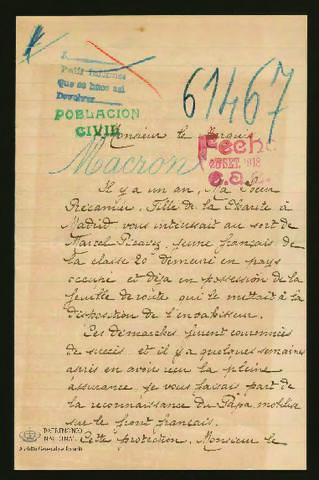 Pedir informes
que se hace así
Devolver
POBLACION
CIVIL
61467
Monsieur le Marquis
Macron
Fecha
SET. 1918
Il y a un an, Ma Sœur
Récamier, Fille de la Charité à
Madrid vous intéressait au sort de
Marcel jeune français de
la classe 20 demeuré en pays
occupé et déjà en possession de la
feuille de route qui le mettait à la
disposition de l'envahisseur.
Ces démarches furent couronnées
de succès et il y a quelques semaines
après en avoir reçu la pleine
assurance je vous faisais part de
la reconnaissance du Papa mobilisé
sur le front français.
Cette protection, Monsieur le
PATRIMONIO
NACIONAL